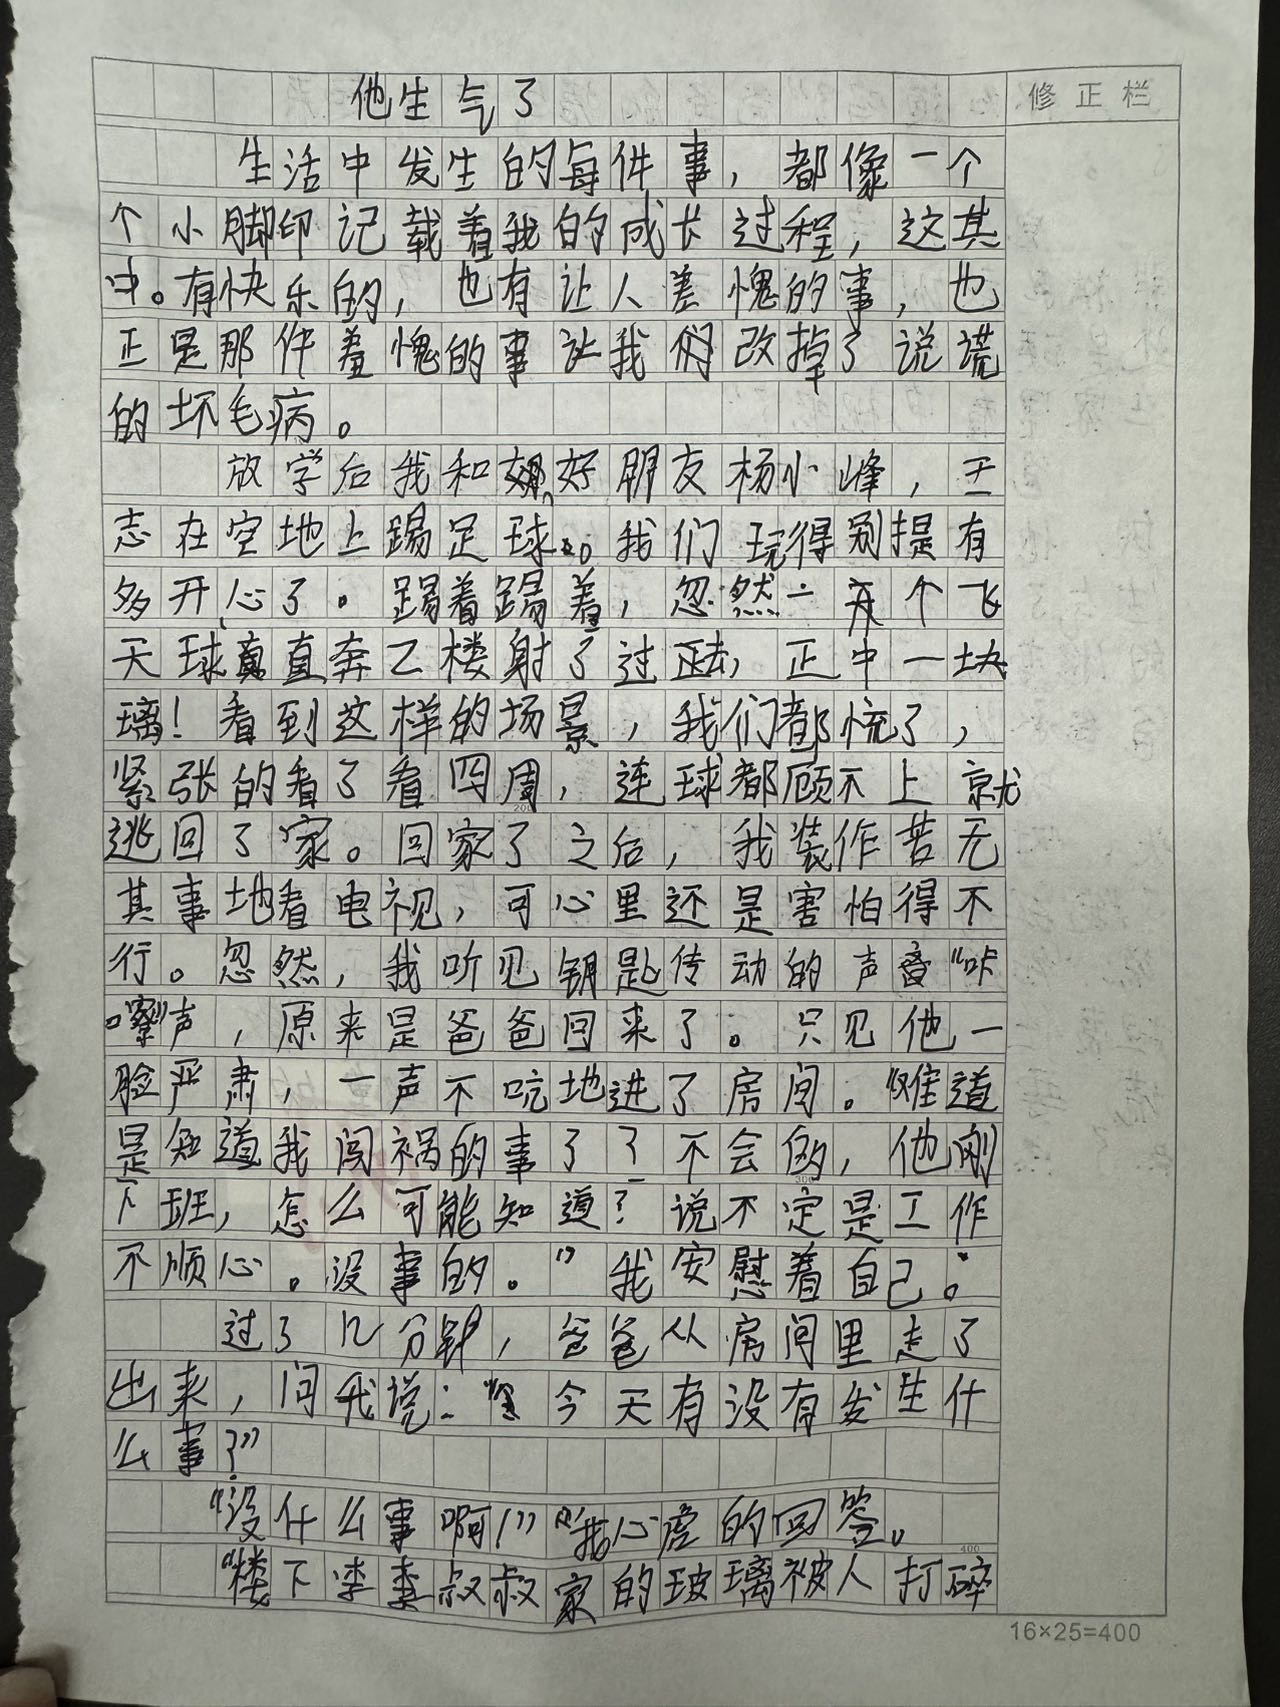 修正栏
他生气了
生活中发生的每件事，都像一个
个小脚印记载着我的成长过程，这其
中。有快乐的，也有让人羞愧的事，也
正是那件羞愧的事让我们改掉了说谎
的坏毛病。
放学后我和好朋友杨小峰，王
志在空地上踢足球。我们玩得别提有
多开心了。踢着踢着，忽然一个飞
天球直奔乙楼射了过去，正中一块
璃！看到这样的场景，我们都慌了，
紧张的看了看四周，连球都顾不上就
逃回了家。回家了之后，我装作若无
其事地看电视，可心里还是害怕得不
行。忽然，我听见钥匙传动的声音“咔
嚓”声，原来是爸爸回来了。只见他一
脸严肃，一声不吭地进了房间。“难道
是知道我闯祸的事了？不会的，他刚
下班，怎么可能知道？说不定是工作
不顺心。没事的。”我安慰着自己。
过了几分钟，爸爸从房间里走了
出来，问我说：“今天有没有发生什
么事？”
“没什么事啊！”我心虚的回答。
“楼下李叔叔家的玻璃被人打碎
16×25=400